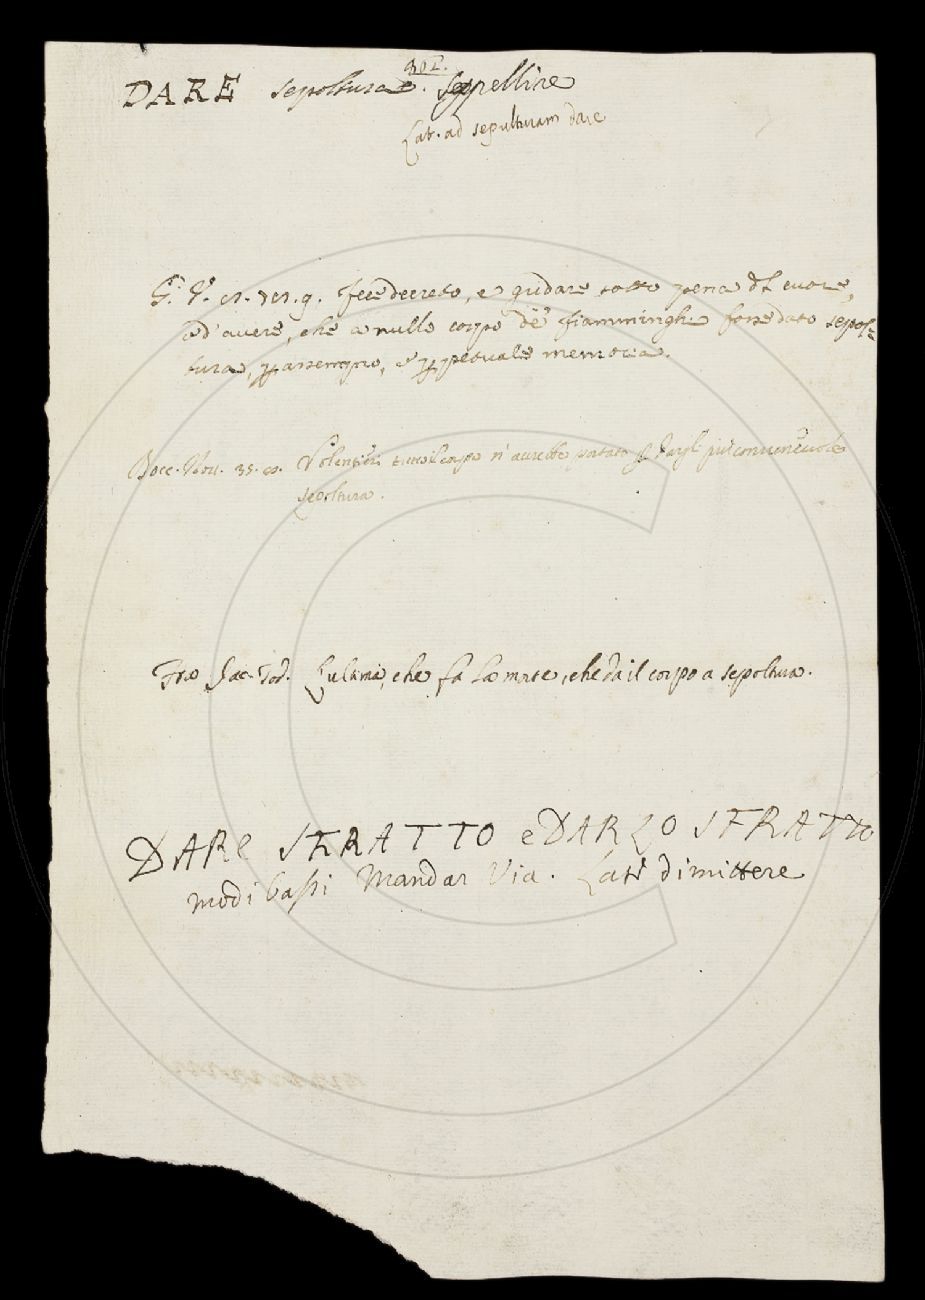 DARE sepoltura. Seppellire
Lat. ad sepulturam dare
G. V. fece decreto, e gridare sotto pena del cuore,
ed avere, che a nullo corpo de' fiamminghi fosse dato sepol-
tura, e perpetuale memoria.
Bocc. Nov. 35. Volentieri tutto il corpo n'avrebbe portato più convenevole
sepoltura.
Fra Jac. Tod. L'ultima, che fa la morte, che dà il corpo a sepoltura.
DARE SFRATTO e DAR LO SFRATTO
modi bassi Mandar Via. Lat. dimittere